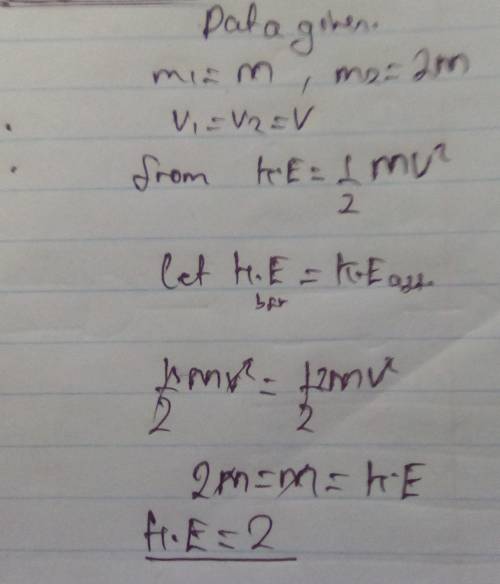 Data given.
m1 = m , m2 = 2m
V1 = V2 = V
from K.E = 1/2 mv²
let K.E bfr = K.E aft.
1/2 mv² = 1/2 2mv²
2m = m = K.E
K.E = 2